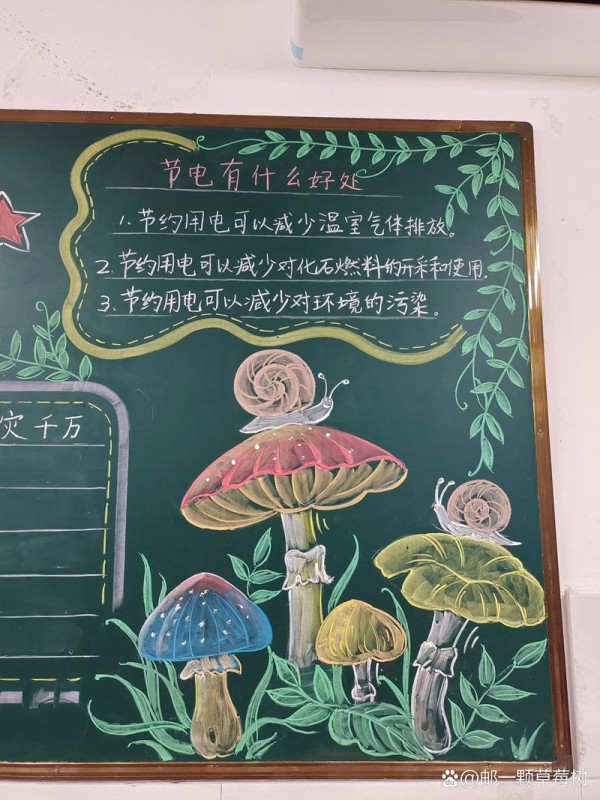 节电有什么好处
1.节约用电可以减少温室气体排放。
2.节约用电可以减少对化石燃料的开采和使用.
3.节约用电可以减少对环境的污染。
灾千万
@邮一颗草莓树